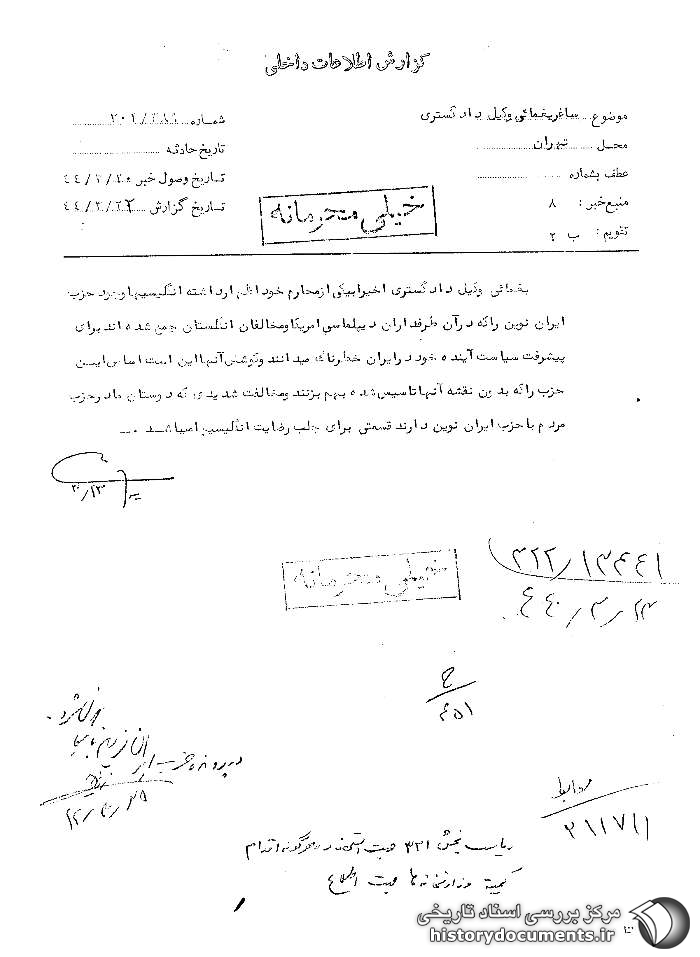 گزارش اطلاعات داخلی
موضوع: ساغر یغمائی وکیل دادگستری
محل تهران
عطف بشماره
منبع خبر: ۸
تقویم: ب ۲
شماره
تاریخ حادثه
تاریخ وصول خبر ۴۴/۳/۲۰
تاریخ گزارش ۴۴/۳/۲۲
خیلی محرمانه
یغمائی وکیل دادگستری اخیرا بیکی از محارم خود اظهار داشته انگلیسیها وجود حزب
ایران نوین را که در آن طرفداران دیپلماسی امریکا و مخالفان انگلستان جمع شده اند برای
پیشرفت سیاست آینده خود در ایران خطرناک میدانند و کوشش آنها این است اساس این
حزب را که بدون نقشه آنها تاسیس شده بهم بزنند و مخالفت شدیدی که دوستان ما در حزب
مردم با حزب ایران نوین دارند قسمتی برای جلب رضایت انگلیسیها میباشد
خیلی محرمانه
۳۲۲/۱۳۴۴۱
۴۴/۳/۲۳
ح
۴۵۱
در پرونده حزب
ریاست بخش ۳۲۱ جهت استحضار و هرگونه اقدام
کمیته وزارتخانه ها جهت اطلاع
مرکز بررسی اسناد تاریخی
historydocuments.ir